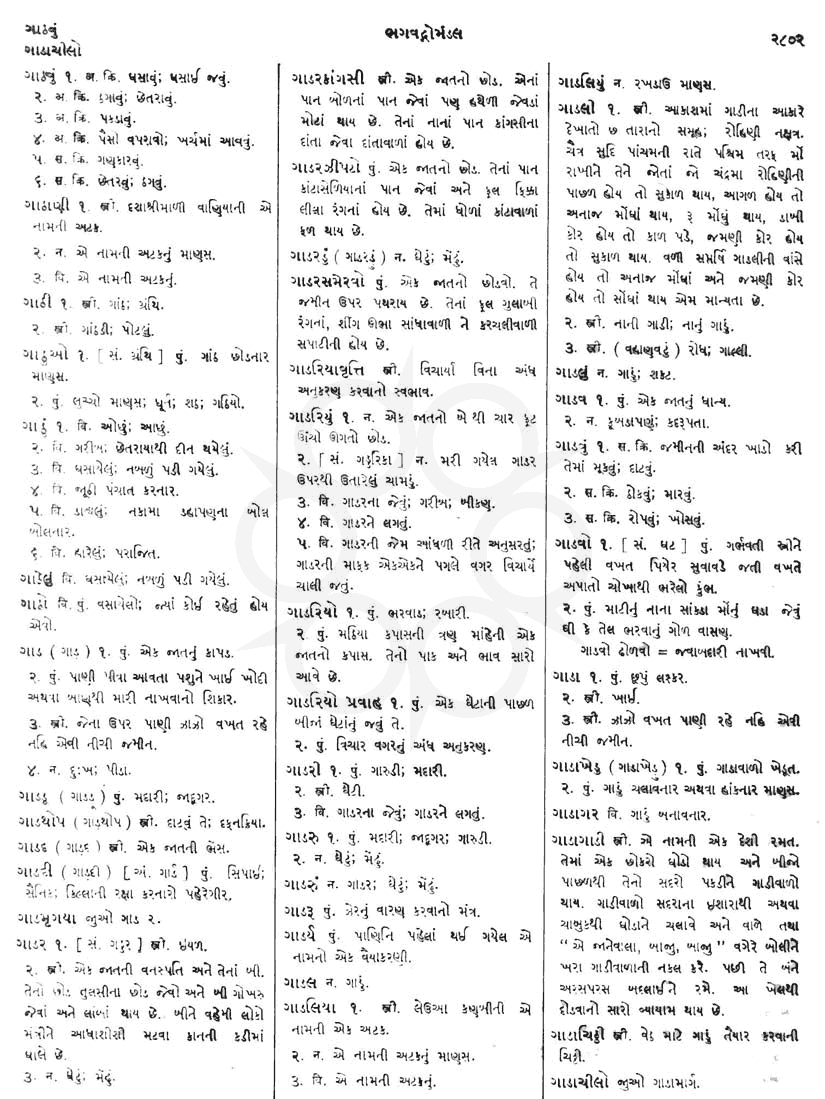 ગાઠવું
ગાડાચીલો
ભગવદ્ગોમંડલ
૨૮૦૨
ગાઠવું ૧. અ. ક્રિ. ઘસાવું; ઘસાઈ જવું.
૨. અ. ક્રિ. ઠગાવું; છેતરાવું.
૩. અ. ક્રિ. પકડાવું.
૪. અ. ક્રિ. પૈસો વપરાવો; ખર્ચમાં આવવું.
૫. સ. ક્રિ. ગણકારવું.
૬. સ. ક્રિ. છેતરવું; ઠગવું.
ગાઠાણી ૧. સ્ત્રી. દશાશ્રીમાળી વાણિયાની એ
નામની અટક.
૨. ન. એ નામની અટકનું માણસ.
૩. વિ. એ નામની અટકનું.
ગાઠી ૧. સ્ત્રી. ગાંઠ; ગ્રંથિ.
૨. સ્ત્રી. ગાંઠડી; પોટલું.
ગાઠુઓ ૧. [ સં. ગ્રંથિ ] પું. ગાંઠ છોડનાર
માણસ.
૨. પું. લુચ્ચો માણસ; ધૂર્ત; શઠ; ગઠિયો.
ગાઠું ૧. વિ. ઓછું; આછું.
૨. વિ. ગરીબ; છેતરાયાથી દીન થયેલું.
૩. વિ. ઘસાયેલું; નબળું પડી ગયેલું.
૪. વિ. જૂઠી પંચાત કરનાર.
૫. વિ. ડાહ્યલું; નકામા ડહાપણના બોલ
બોલનાર.
૬. વિ. હારેલું; પરાજિત.
ગાઠેલું વિ. ઘસાયેલું; નબળું પડી ગયેલું.
ગાઠો વિ. પું. વસાયેલો; જ્યાં કોઈ રહેતું હોય
એવો.
ગાડ ( ગાડ઼ ) ૧. પું. એક જાતનું કાપડ.
૨. પું. પાણી પીવા આવતા પશુને ખાઈ ખોદી
અથવા બાણથી મારી નાખવાનો શિકાર.
૩. સ્ત્રી. જેના ઉપર પાણી ઝાઝો વખત રહે
નહિ એવી નીચી જમીન.
૪. ન. દુઃખ; પીડા.
ગાડડૂ ( ગાડડૂ ) પું. મદારી; જાદુગર.
ગાડથોપ ( ગાડ઼થોપ ) સ્ત્રી. દાટવું તે; દફનક્રિયા.
ગાડદ ( ગાડ઼દ ) સ્ત્રી. એક જાતની ભેંસ.
ગાડદી ( ગાડ઼દી ) [ અં. ગાર્ડ ] પું. સિપાઈ;
સૈનિક; કિલ્લાની રક્ષા કરનારો પહેરેગીર.
ગાડમૃગયા જુઓ ગાડ ૨.
ગાડર ૧. [ સં. ગડ્ડર ] સ્ત્રી. ઇયળ.
૨. સ્ત્રી. એક જાતની વનસ્પતિ અને તેનાં બી.
તેનો છોડ તુલસીના છોડ જેવો અને બી ગોખરુ
જેવાં અને લાંબાં થાય છે. બીને વહેમી લોકો
મંત્રીને આધાશીસી મટવા કાનની કડીમાં
ઘાલે છે.
૩. ન. ઘેટું; મેંઢું.
ગાડરકાંગસી સ્ત્રી. એક જાતનો છોડ. એનાં
પાન બોળનાં પાન જેવાં પણ હથેળી જેવડાં
મોટાં થાય છે. તેનાં નાનાં પાન કાંગસીના
દાંતા જેવા દાંતાવાળાં હોય છે.
ગાડરઝીપટો પું. એક જાતનો છોડ. તેનાં પાન
કાંટાસેળિયાનાં પાન જેવાં અને ફૂલ ફિક્કા
લીલા રંગનાં હોય છે. તેમાં ધોળાં કાંટાવાળાં
ફળ થાય છે.
ગાડરડું ( ગાડરડું ) ન. ઘેટું; મેંઢું.
ગાડરસમેરવો પું. એક જાતનો છોડવો. તે
જમીન ઉપર પથરાય છે. તેનાં ફૂલ ગુલાબી
રંગનાં, શીંગ ઊભા સાંધાવાળી ને કરચલીવાળી
સપાટીની હોય છે.
ગાડરિયાવૃત્તિ સ્ત્રી. વિચાર્યા વિના અંધ
અનુકરણ કરવાનો સ્વભાવ.
ગાડરિયું ૧. ન. એક જાતનો બેથી ચાર ફૂટ
ઊંચો ઊગતો છોડ.
૨. [ સં. ગડ્ડરિકા ] ન. મરી ગયેલ ગાડર
ઉપરથી ઉતારેલું ચામડું.
૩. વિ. ગાડરના જેવું; ગરીબ; બીકણ.
૪. વિ. ગાડરને લગતું.
૫. વિ. ગાડરની જેમ આંધળી રીતે અનુસરતું;
ગાડરની માફક એકએકને પગલે વગર વિચાર્યે
ચાલી જતું.
ગાડરિયો ૧. પું. ભરવાડ; રબારી.
૨. પું. મઠિયા કપાસની ત્રણ માંહેની એક
જાતનો કપાસ. તેનો પાક અને ભાવ સારો
આવે છે.
ગાડરિયો પ્રવાહ ૧. પું. એક ઘેટાની પાછળ
બીજાં ઘેટાંનું જવું તે.
૨. પું. વિચાર વગરનું અંધ અનુકરણ.
ગાડરી ૧. પું. ગારુડી; મદારી.
૨. સ્ત્રી. ઘેટી.
૩. વિ. ગાડરના જેવું; ગાડરને લગતું.
ગાડરુ ૧. પું. મદારી; જાદુગર; ગારુડી.
૨. ન. ઘેટું; મેંઢું.
ગાડરું ન. ગાડર; ઘેટું; મેંઢું.
ગાડરૂ પું. ઝેરનું વારણ કરવાનો મંત્ર.
ગાડર્ય પું. પાણિનિ પહેલાં થઈ ગયેલ એ
નામનો એક વૈયાકરણી.
ગાડલ ન. ગાડું.
ગાડલિયા ૧. સ્ત્રી. લેઉઆ કણબીની એ
નામની એક અટક.
૨. ન. એ નામની અટકનું માણસ.
૩. વિ. એ નામની અટકનું.
ગાડલિયું ન. રખડાઉ માણસ.
ગાડલી ૧. સ્ત્રી. આકાશમાં ગાડીના આકારે
દેખાતો છ તારાનો સમૂહ; રોહિણી નક્ષત્ર.
ચૈત્ર સુદિ પાંચમની રાતે પશ્ચિમ તરફ મોં
રાખીને તેને જોતાં જે ચંદ્રમા રોહિણીની
પાછળ હોય તો સુકાળ થાય, આગળ હોય તો
અનાજ મોંઘાં થાય, રૂ મોંઘું થાય, ડાબી
કોર હોય તો કાળ પડે, જમણી કોર હોય
તો સુકાળ થાય. વળી સપ્તર્ષિ ગાડલીની વાંસે
હોય તો અનાજ મોંઘાં અને જમણી કોર
હોય તો સોંઘાં થાય એમ માન્યતા છે.
૨. સ્ત્રી. નાની ગાડી; નાનું ગાડું.
૩. સ્ત્રી. ( વહાણવટું ) રોધ; ગાલ્લી.
ગાડલું ન. ગાડું; શકટ.
ગાડવ ૧. પું. એક જાતનું ધાન્ય.
૨. ન. કૂબડાપણું; કદરૂપતા.
ગાડવું ૧. સ. ક્રિ. જમીનની અંદર ખાડો કરી
તેમાં મૂકવું; દાટવું.
૨. સ. ક્રિ. ઠોકવું; મારવું.
૩. સ. ક્રિ. રોપવું; ખોસવું.
ગાડવો ૧. [ સં. ઘટ ] પું. ગર્ભવતી સ્ત્રીને
પહેલી વખત પિયેર સુવાવડે જતી વખતે
અપાતો ચોખાથી ભરેલો કુંભ.
૨. પું. માટીનું નાના સાંકડા મોંનું ઘડા જેવું
ઘી કે તેલ ભરવાનું ગોળ વાસણ.
ગાડવો ઢોળવો = જવાબદારી નાખવી.
ગાડા ૧. પું. છૂપું લશ્કર.
૨. સ્ત્રી. ખાઈ.
૩. સ્ત્રી. ઝાઝો વખત પાણી રહે નહિ એવી
નીચી જમીન.
ગાડાખેડુ (ગાડાખેડુ઼) ૧. પું. ગાડાવાળો ખેડૂત.
૨. પું. ગાડું ચલાવનાર અથવા હાંકનાર માણસ.
ગાડાગર વિ. ગાડું બનાવનાર.
ગાડાગાડી સ્ત્રી. એ નામની એક દેશી રમત.
તેમાં એક છોકરો ઘોડો થાય અને બીજો
પાછળથી તેનો સદરો પકડીને ગાડીવાળો
થાય. ગાડીવાળો સદરાના ઇશારાથી અથવા
ચાબુકથી ઘોડાને ચલાવે અને વાળે તથા
“ એ જાનેવાલા, બાજુ, બાજુ ” વગેરે બોલીને
ખરા ગાડીવાળાની નકલ કરે. પછી તે બંને
અરસપરસ બદલાઈને રમે. આ ખેલથી
દોડવાનો સારો વ્યાયામ થાય છે.
ગાડાચિઠ્ઠી સ્ત્રી. વેઠ માટે ગાડું તૈયાર કરવાની
ચિઠ્ઠી.
ગાડાચીલો જુઓ ગાડામાર્ગ.